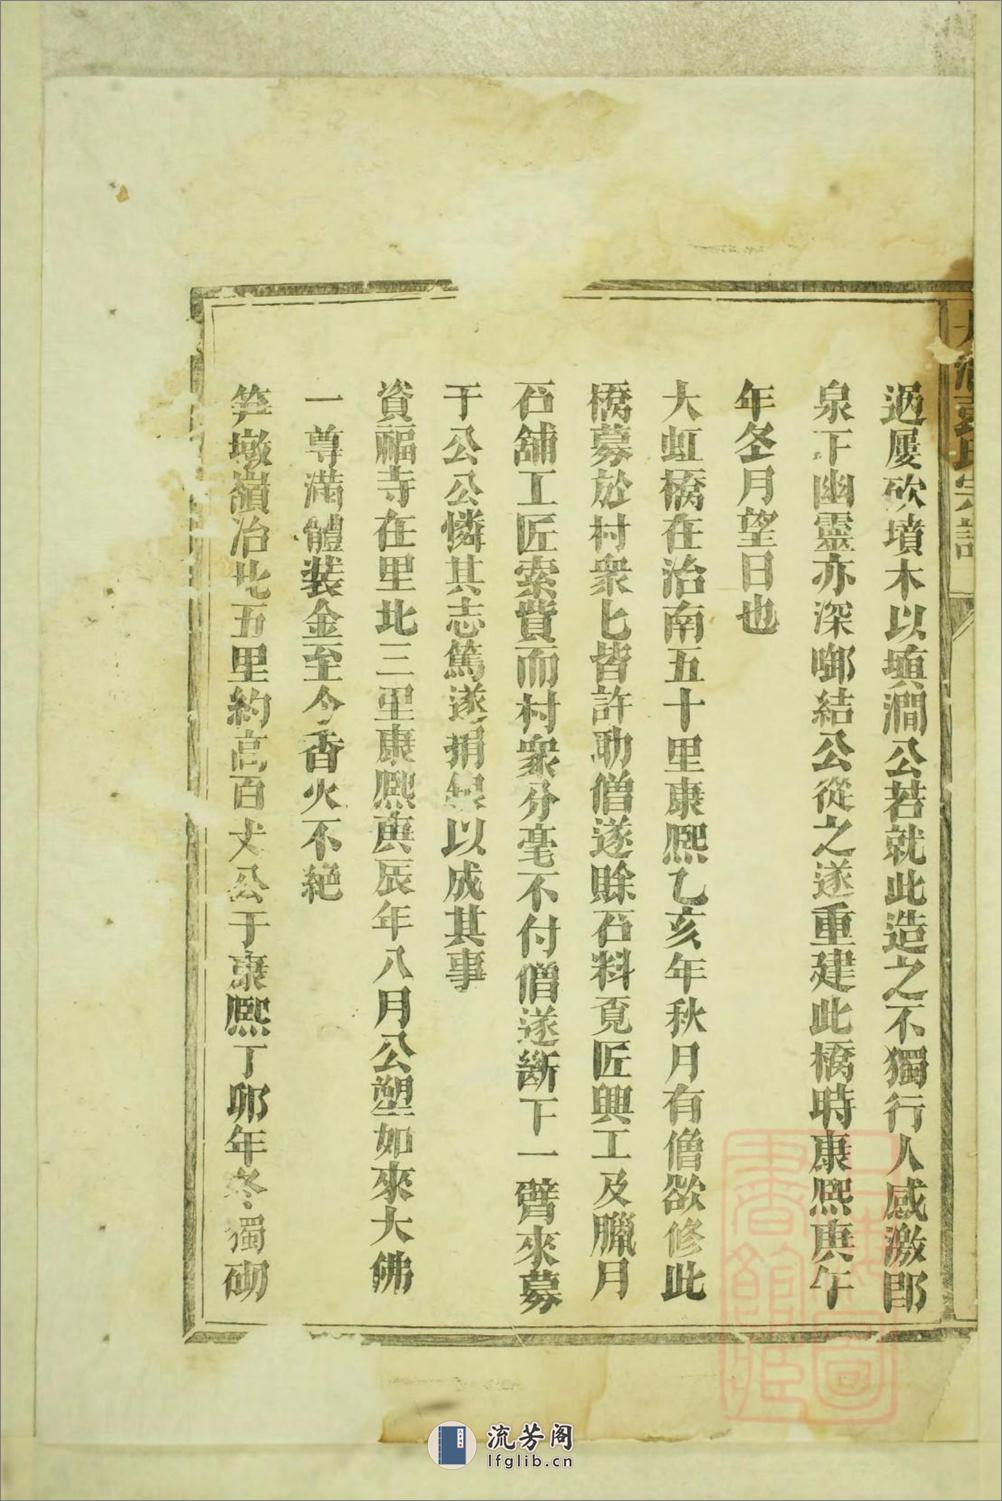 過屢砍墳木以填澗公若就此造之不獨行人感激即
泉下幽靈亦深啣結公從之遂重建此橋時康熙庚午
年冬月望日也
大虹橋在治南五十里康熙乙亥年秋月有僧欲修此
橋募於村衆匕皆許助僧遂賒石料覓匠興工及臘月
石舖工匠索費而村衆分毫不付僧遂斷下一臂來募
于公公憐其志篤遂捐銀以成其事
資福寺在里北三里康熙庚辰年八月公塑如來大佛
一尊滿體裝金至今香火不絕
笋墩嶺治北五里約高百丈公于康熙丁卯年冬獨砌
氏宗譜
流芳阁
lfglib.cn